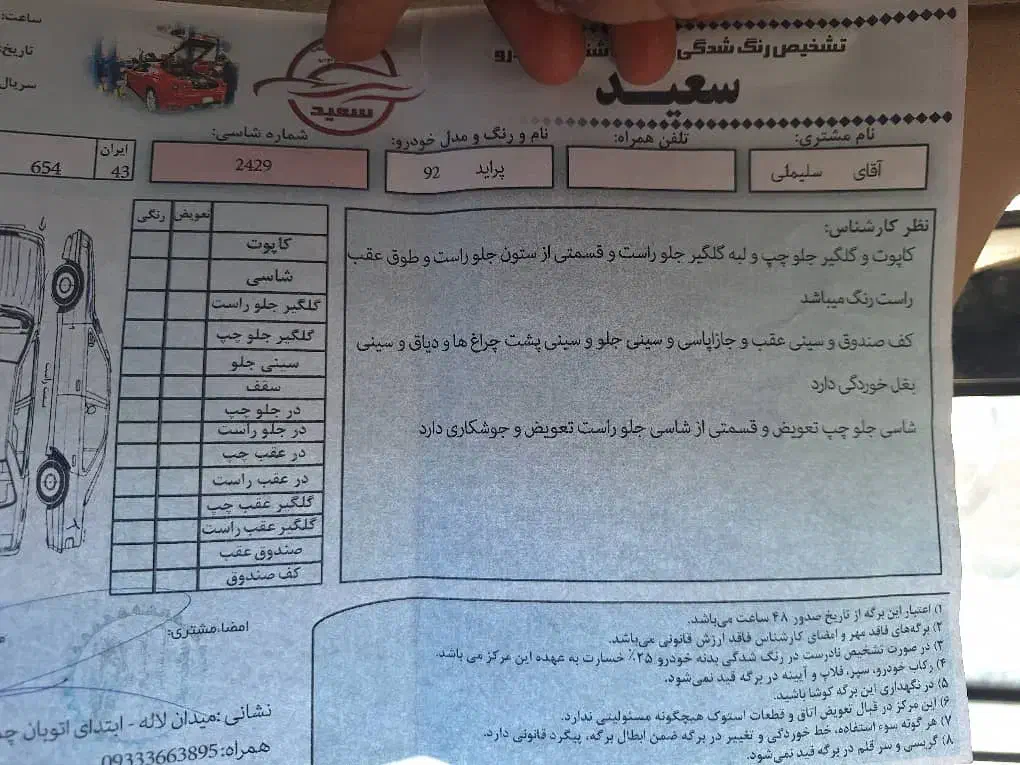 تشخیص رنگ شدگی
سعید
سعید
ساعت:
تاریخ:
سریال
نام مشتری:
آقای سلیملی
تلفن همراه:
نام و رنگ و مدل خودرو:
پراید 92
شماره شاسی:
2429
ایران
43
654
نظر کارشناس:
کاپوت و گلگیر جلو چپ و لبه گلگیر جلو راست و قسمتی از ستون جلو راست و طوق عقب
راست رنگ میباشد
کف صندوق و سینی عقب و جازاپاسی و سینی جلو و سینی پشت چراغ ها و دیاق و سینی
بغل خوردگی دارد
شاسی جلو چپ تعویض و قسمتی از شاسی جلو راست تعویض و جوشکاری دارد
تعویض رنگی
کاپوت
شاسی
گلگیر جلو راست
گلگیر جلو چپ
سینی جلو
سقف
در جلو چپ
در جلو راست
در عقب چپ
در عقب راست
گلگیر عقب چپ
گلگیر عقب راست
صندوق عقب
کف صندوق
۱) اعتبار این برگه از تاریخ صدور ۴۸ ساعت می‌باشد.
۲) برگه‌های فاقد مهر و امضای کارشناس فاقد ارزش قانونی می‌باشد.
۳) در صورت تشخیص نادرست در رنگ شدگی بدنه خودرو ۲۵٪ خسارت به عهده این مرکز می باشد.
۴) رکاب خودرو، سپر، فلاپ و آیینه در برگه قید نمی‌شود.
۵) در نگهداری این برگه کوشا باشید.
۶) این مرکز در قبال تعویض اتاق و قطعات استوک هیچگونه مسئولیتی ندارد.
۷) هر گونه سوء استفاده، خط خوردگی و تغییر در برگه ضمن ابطال برگه، پیگرد قانونی دارد.
۸) گریسی و سر قلم در برگه قید نمی‌شود.
امضاء مشتری:
نشانی :میدان لاله - ابتدای اتوبان
همراه: 09333663895